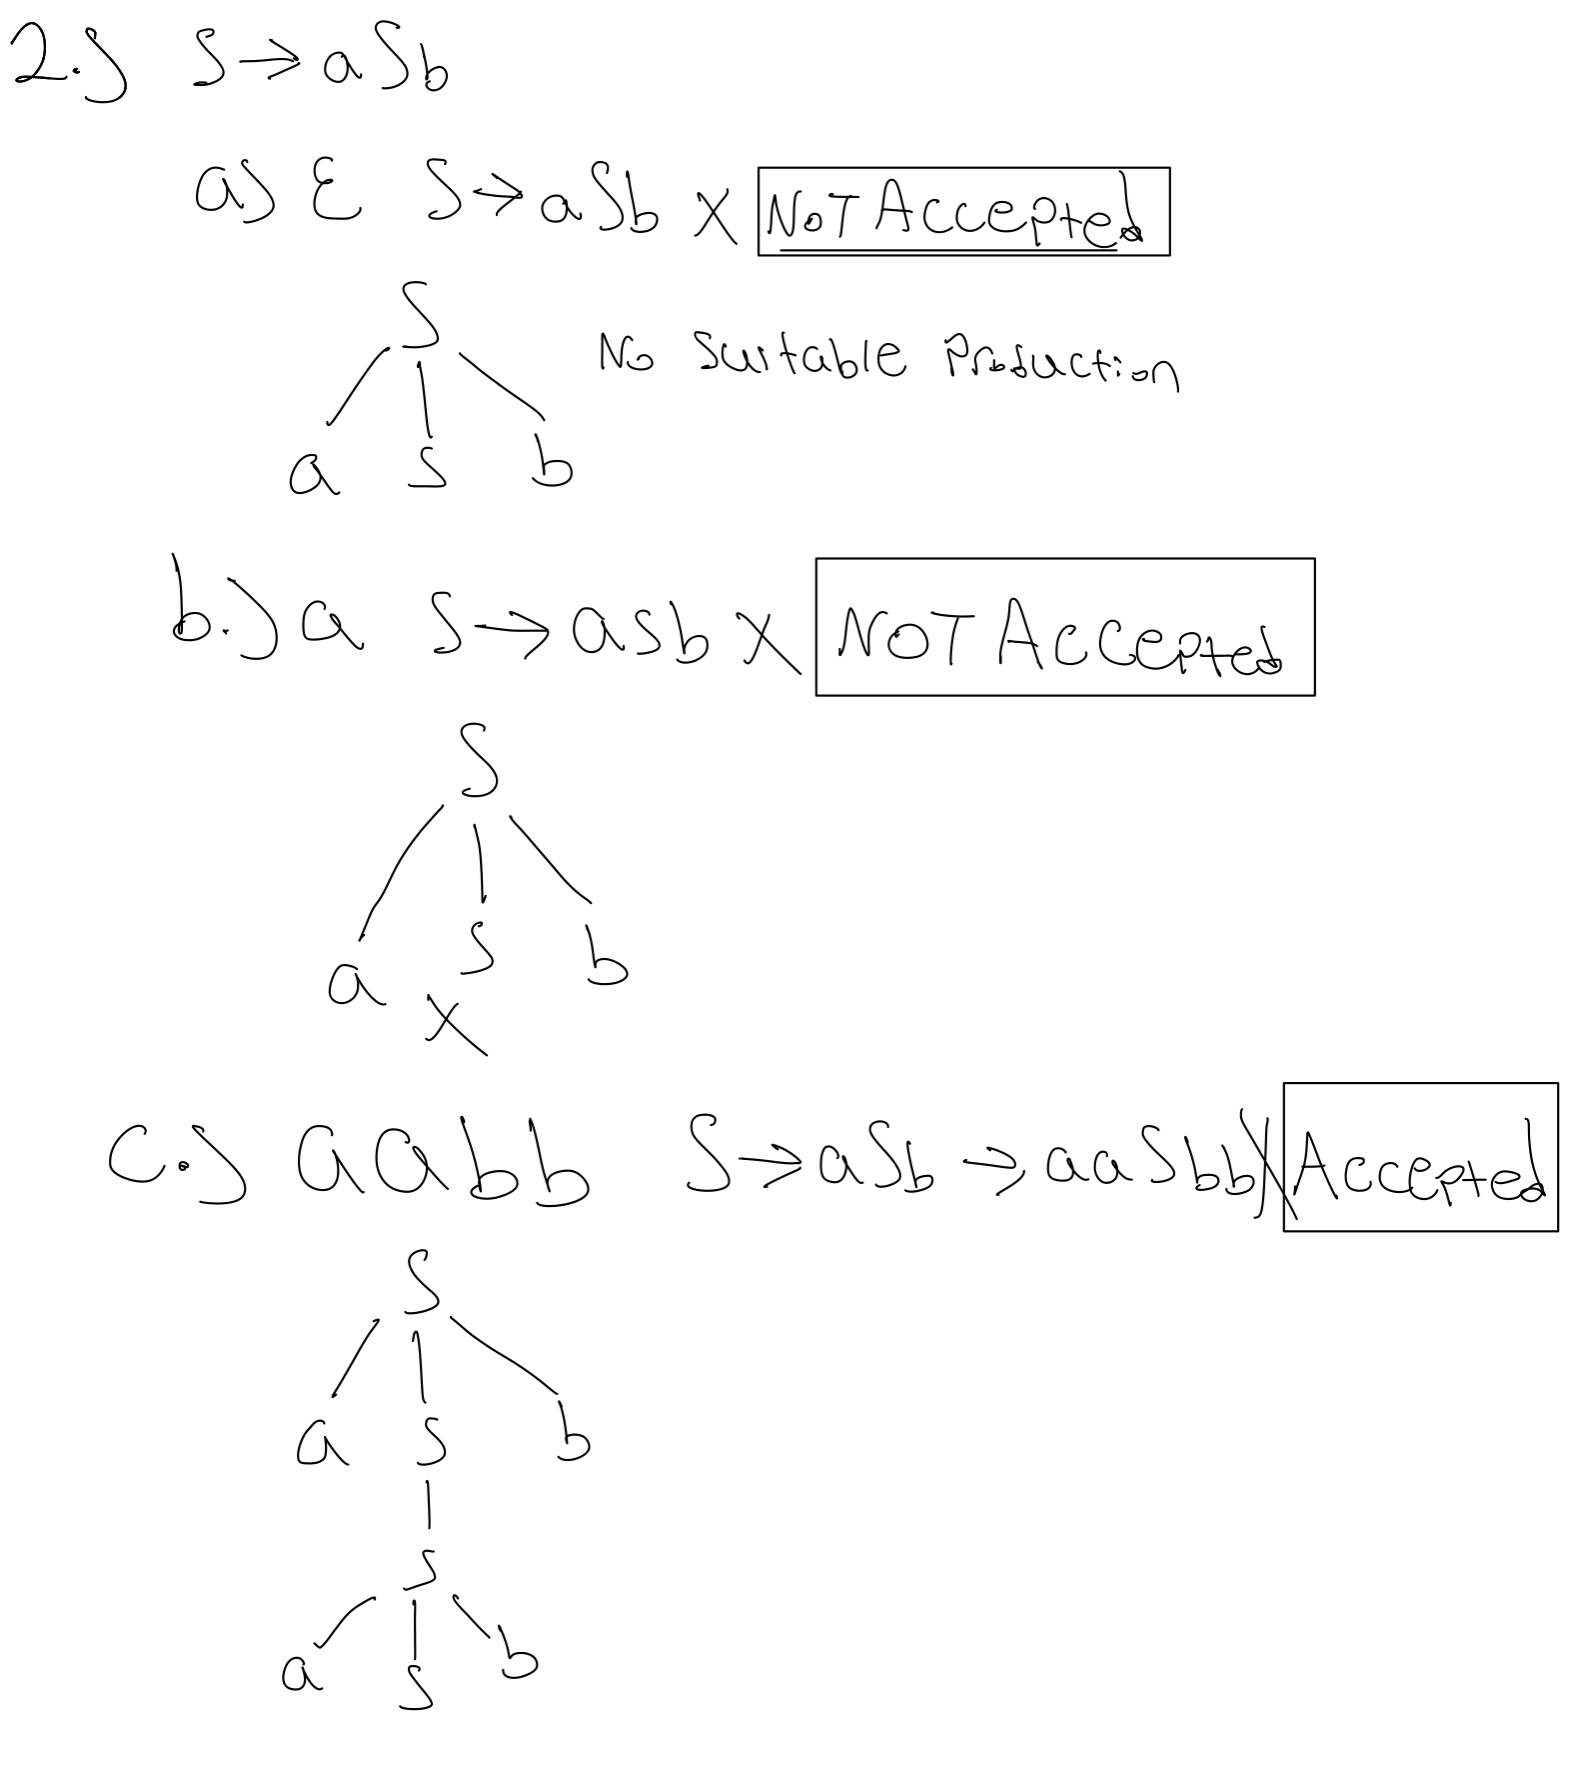 2.) S → aSb
a) ε S → aSb X NOT Accepted
S
No Suitable Production
a S b
b.) a S → asb X NOT Accepted
S
a S b
X
c.) aabb S → aSb → aaSbb X Accepted
S
a S b
S
a S b